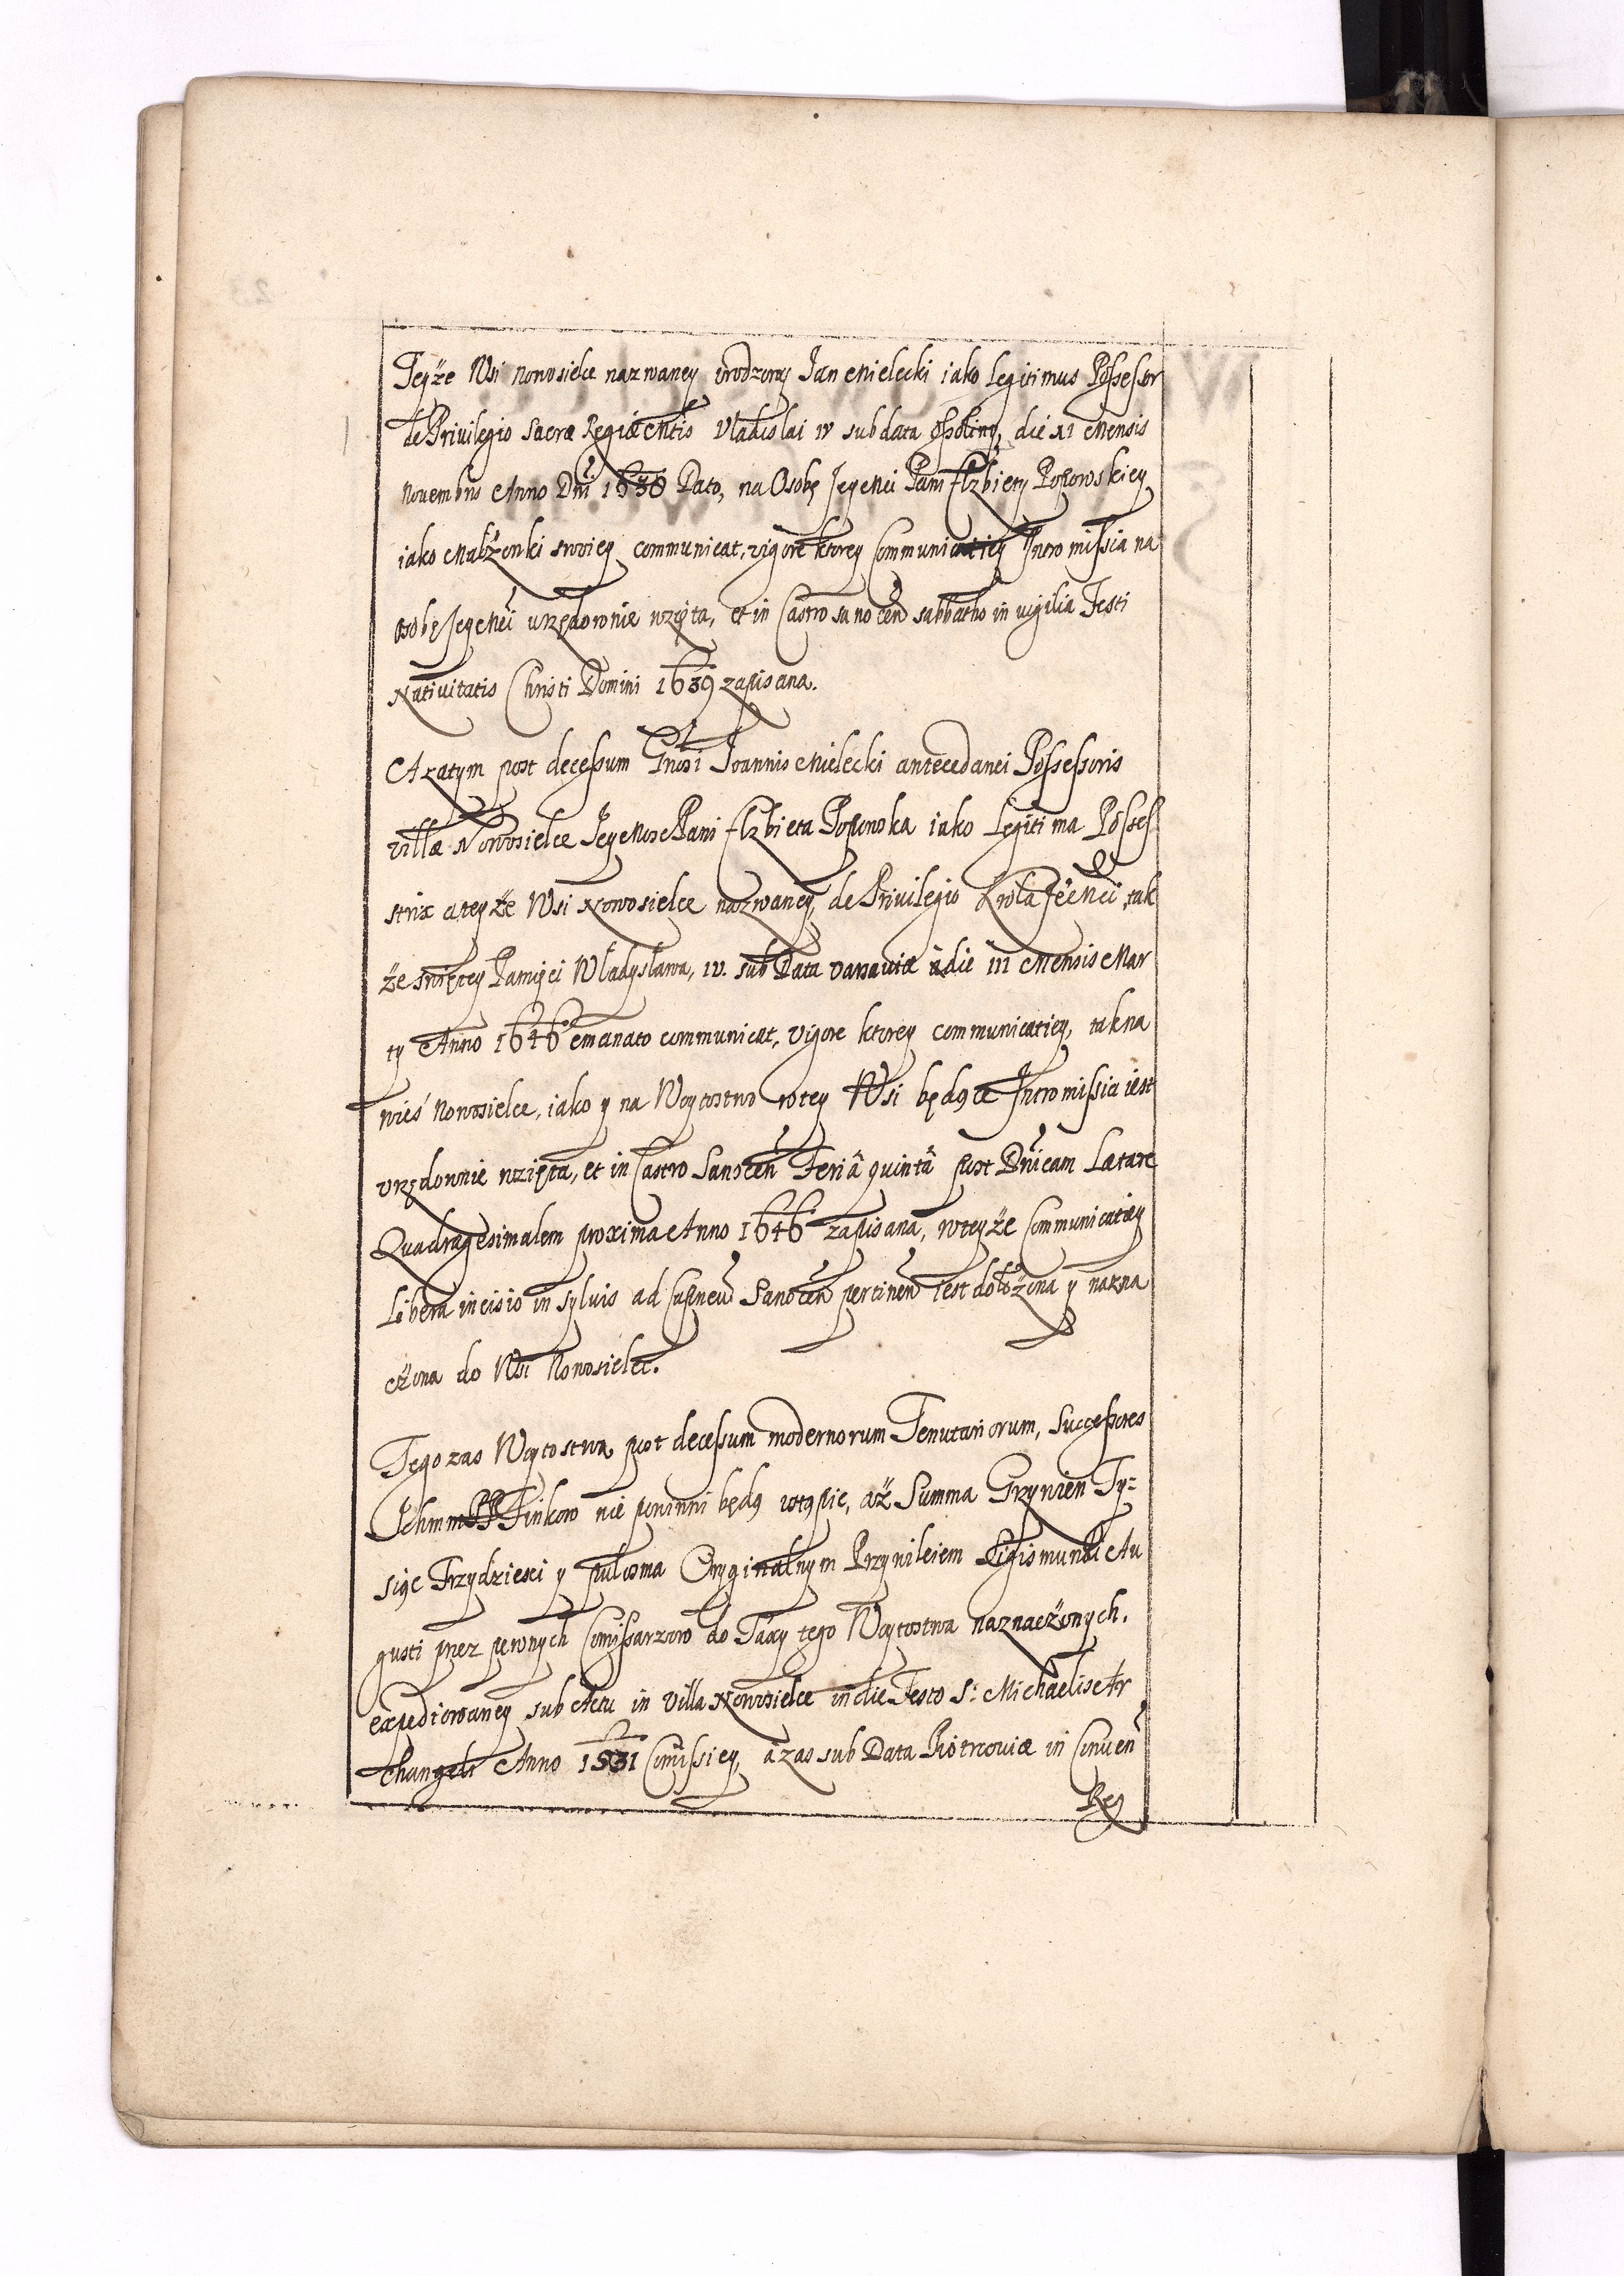 Teyże Wsi Nowosielce nazwaney urodzony Jan Mielecki iako Legitimus Possessor
de Privilegio Sacræ Regiæ Mtis Vladislai IV sub data die XI Mensis
Novembris Anno Dni 1638 Dato, na Osobę Jegemci Pani Elzbiety Popowskiey
iako Malżonki swoiey communicat, vigore ktorey Communicatiey Intromissia na
osobę Jegemci urzędownie wzięta, et in Castro Sanocen sabbatho in vigilia Festi
Nativitatis Christi Domini 1639 zapisana.
A zatym post decessum Gnosi Joannis Mielecki antecedanei Possessoris
villæ Nowosielce Jegemosc Pani Elzbieta Popowska iako Legitima Posses
strix teyże Wsi Nowosielce nazwaney, de Privilegio Krola Je Mci, tak
że swiętey Pamięci Wladysława, IV. sub Data Varsaviæ die III Mensis Mar
ty Anno 1646 emanato communicat, vigore ktorey communicatiey, tak na
wieś Nowosielce, iako y na Woytostwo w tey Wsi będące Intromissia iest
urzędownie wzięta, et in Castro Sanocen Feriâ quintâ post Dnicam Lætare
Quadragesimalem proxima Anno 1646 zapisana, w teyże Communicatiey
Libera incisio in sylvis ad Capneu Sanocen pertinen iest dołożona y nazna
czona do Wsi Nowosielec.
Tego zas Woytostwa post decessum modernorum Tenutariorum, Successores
Ichmm PP Finkow nie powinni będą ustąpic, aż Summa Grzywien Ty=
siąc Trzydziesci y pulosma Oryginalnym Przywileiem Sigismundi Au
gusti przez pewnych Comissarzow do Taxy tego Woytostwa naznaczonych.
expediowaney sub Actu in Villa Nowosielce in die Festo S: Michaelis Ar
changeli Anno 1531 Comissiey, a zas sub Data Piotrcoviæ in Conven
Reg